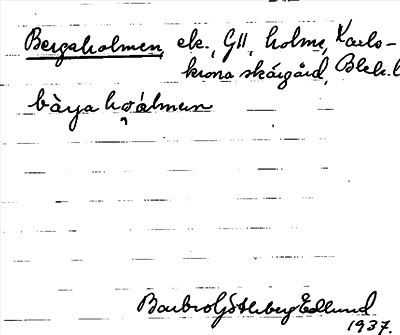 Bergaholmen, ek., GII, holme, Karls-
krona skärgård, Blek. l
bàrya hoálmen
Barbro Göthberg Edlund
1937.